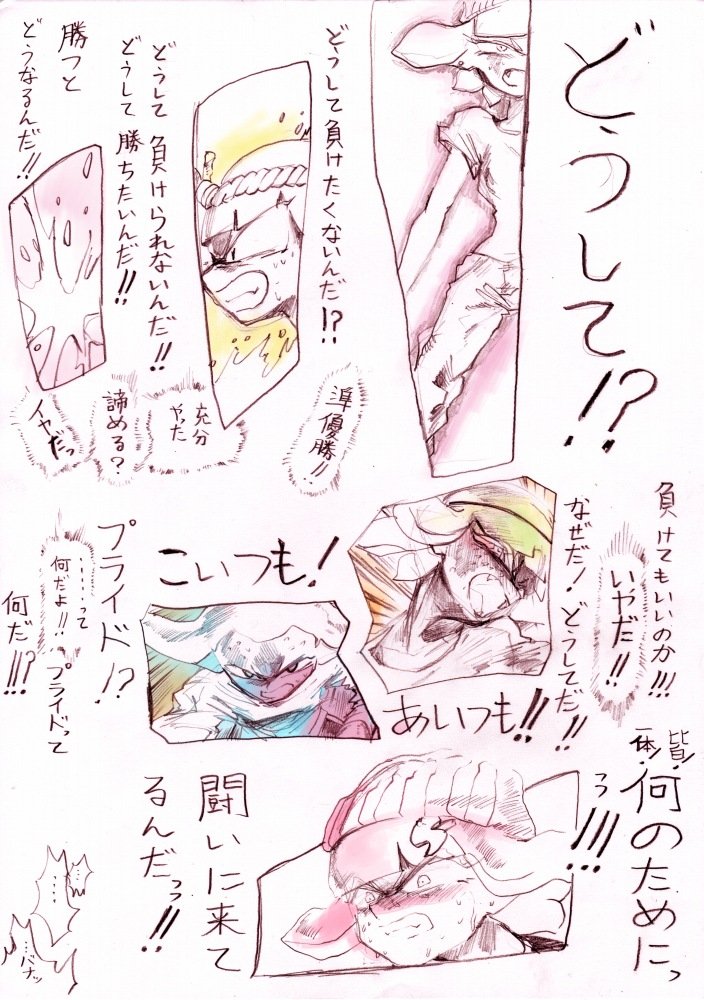 どうして!?
どうして負けたくないんだ!?
どうして負けられないんだ!!
どうして勝ちたいんだ!!
勝つと
どうなるんだ!!
準優勝!!
充分
やった
諦める?
イヤだっ
負けてもいいのか!!!
いやだ!!
なぜだ!どうしてだ!!
あいつも!!
こいつも!
プライド!?
……って
何だよ!!
プライドって
何だ!?!!
皆
一体
何のためにっ
っ!!!
闘いに来て
るんだっっ!!